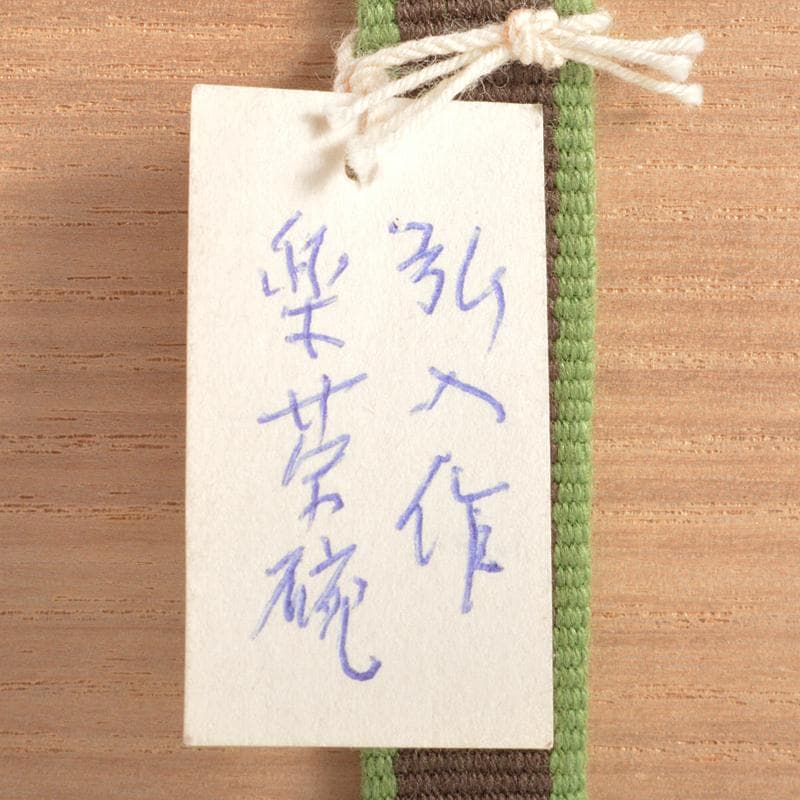 弘入作
楽茶碗